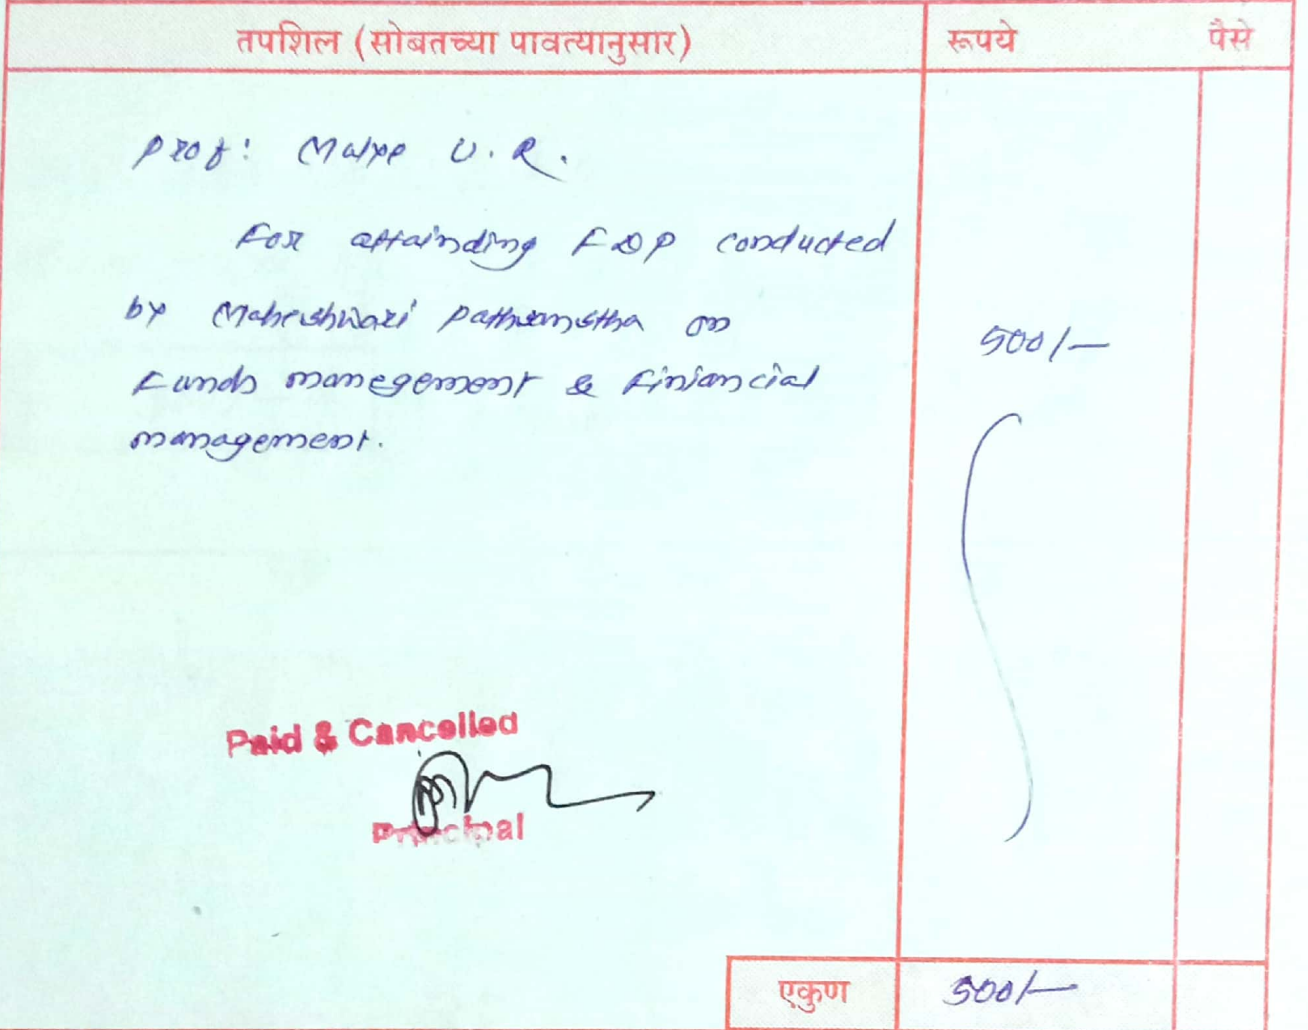 तपशिल (सोबतच्या पावत्यानुसार) रूपये पैसे
Prof: Malpe U.R.
For attainding FDP conducted
by Maheshwari Pathsanstha on
500/-
Funds manegement & Finiancial
management.
Paid & Cancelled
Principal
एकुण 500/-